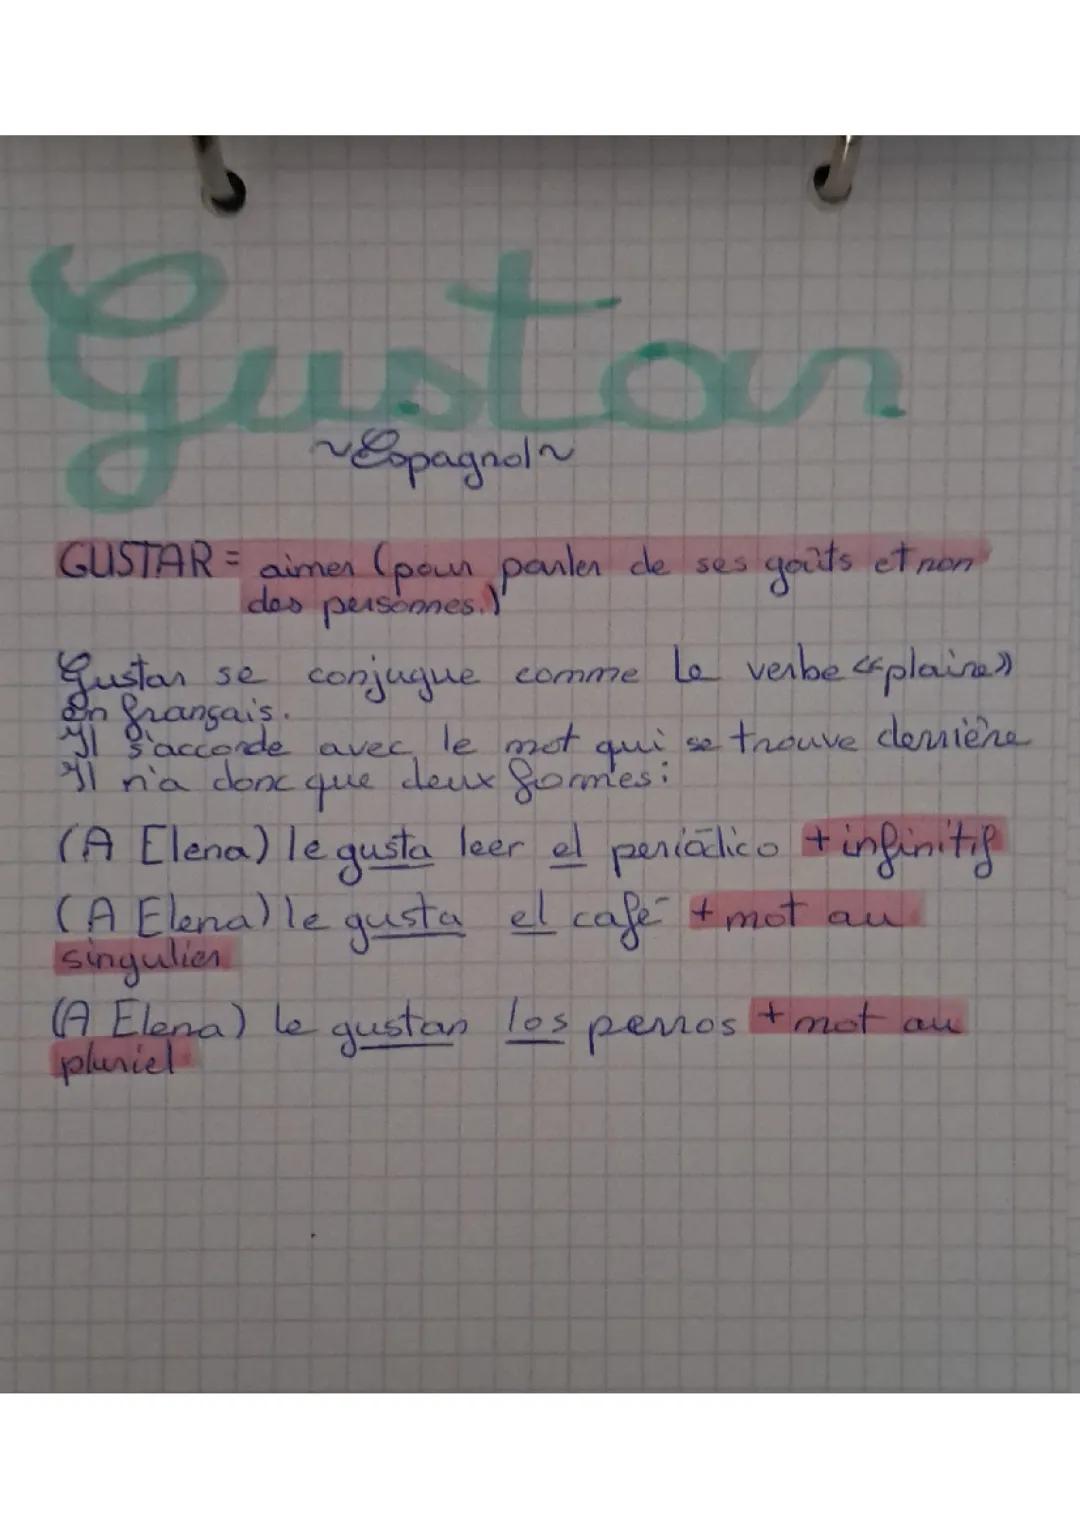 Gustar
~Espagnol~
GUSTAR = aimer (pour parler de ses goûts et non
des personnes.)
Gustar se conjugue comme le verbe «plaire»
en français.
Il s'accorde avec le mot qui se trouve derrière
Il n'a donc que deux formes:
(A Elena) le gusta leer el periódico + infinitif
(A Elena) le gusta el café + mot au
singulier
(A Elena) le gustan los perros + mot au
pluriel